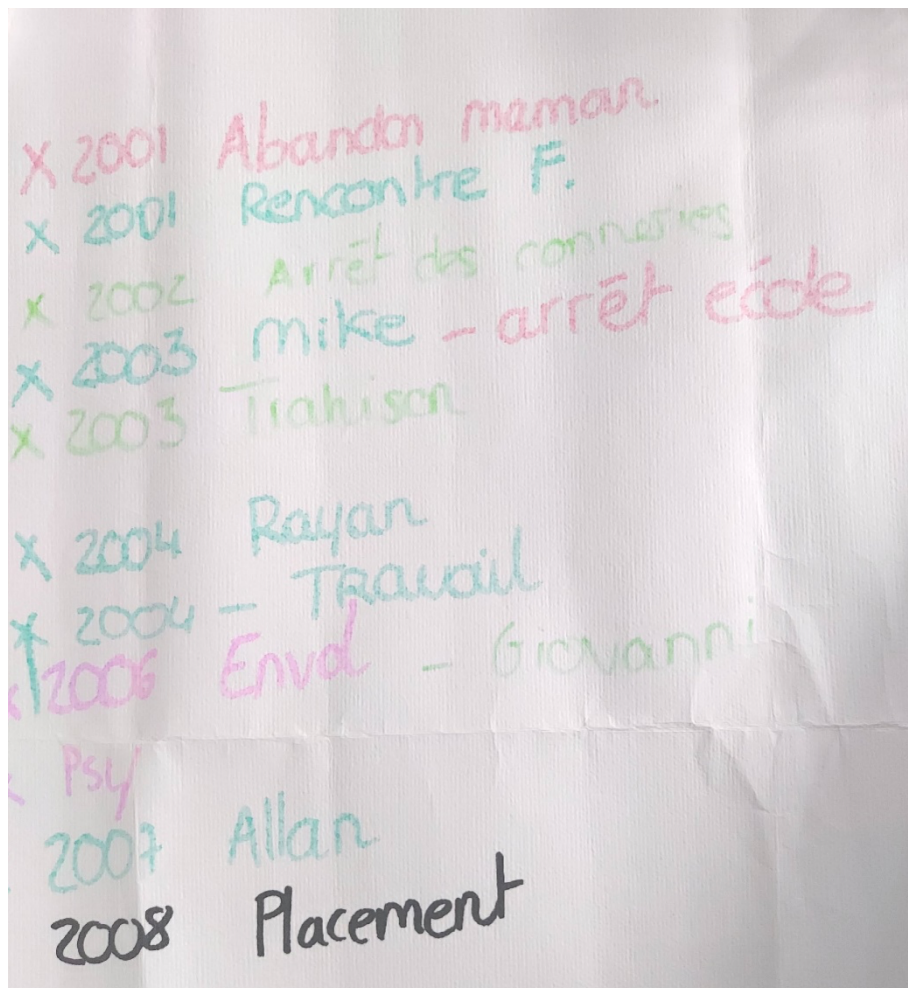 X 2001 Abandon maman
X 2001 Rencontre F.
X 2002 Arrêt des conneries
X 2003 Mike - arrêt école
X 2003 Trahison
X 2004 Rayan
X 2004 - Travail
X 2006 Envol - Giovanni
X Psy
2007 Allan
2008 Placement